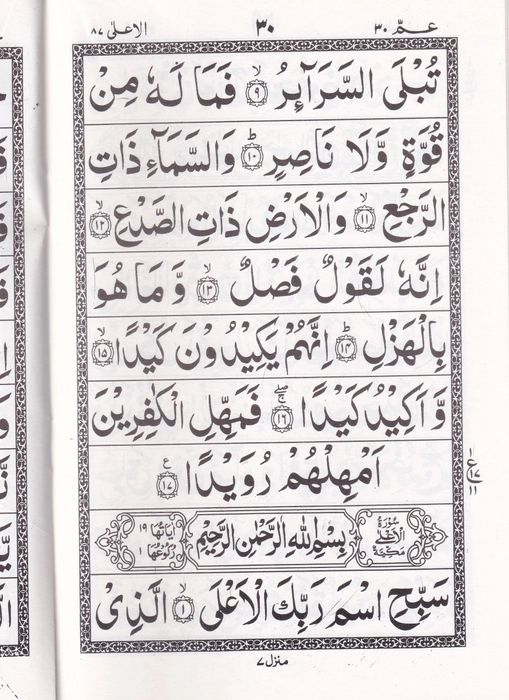 عـمّ ٣٠ ٣٠ الاعلىٰ ٨٧
تُبْلَى السَّرَآئِرُ ۙ﴿٩﴾ فَمَا لَهٗ مِنْ
قُوَّةٍ وَّلَا نَاصِرٍ ؕ﴿١٠﴾ وَالسَّمَآءِ ذَاتِ
الرَّجْعِ ۙ﴿١١﴾ وَالْاَرْضِ ذَاتِ الصَّدْعِ ۙ﴿١٢﴾
اِنَّهٗ لَقَوْلٌ فَصْلٌ ۙ﴿١٣﴾ وَّمَا هُوَ
بِالْهَزْلِ ؕ﴿١٤﴾ اِنَّهُمْ يَكِيْدُوْنَ كَيْدًا ۙ﴿١٥﴾
وَّاَكِيْدُ كَيْدًا ۚۖ﴿١٦﴾ فَمَهِّلِ الْكٰفِرِيْنَ
اَمْهِلْهُمْ رُوَيْدًا ﴿١٧﴾ ع
١ ع ١٧ ١١
سُوْرَةُ الْاَعْلٰى مَكِّيَّةٌ بِسْمِ اللهِ الرَّحْمٰنِ الرَّحِيْمِ اٰيَاتُهَا ١٩ رُكُوْعُهَا ١
سَبِّحِ اسْمَ رَبِّكَ الْاَعْلَى ۙ﴿١﴾ الَّذِيْ
منزل ٧